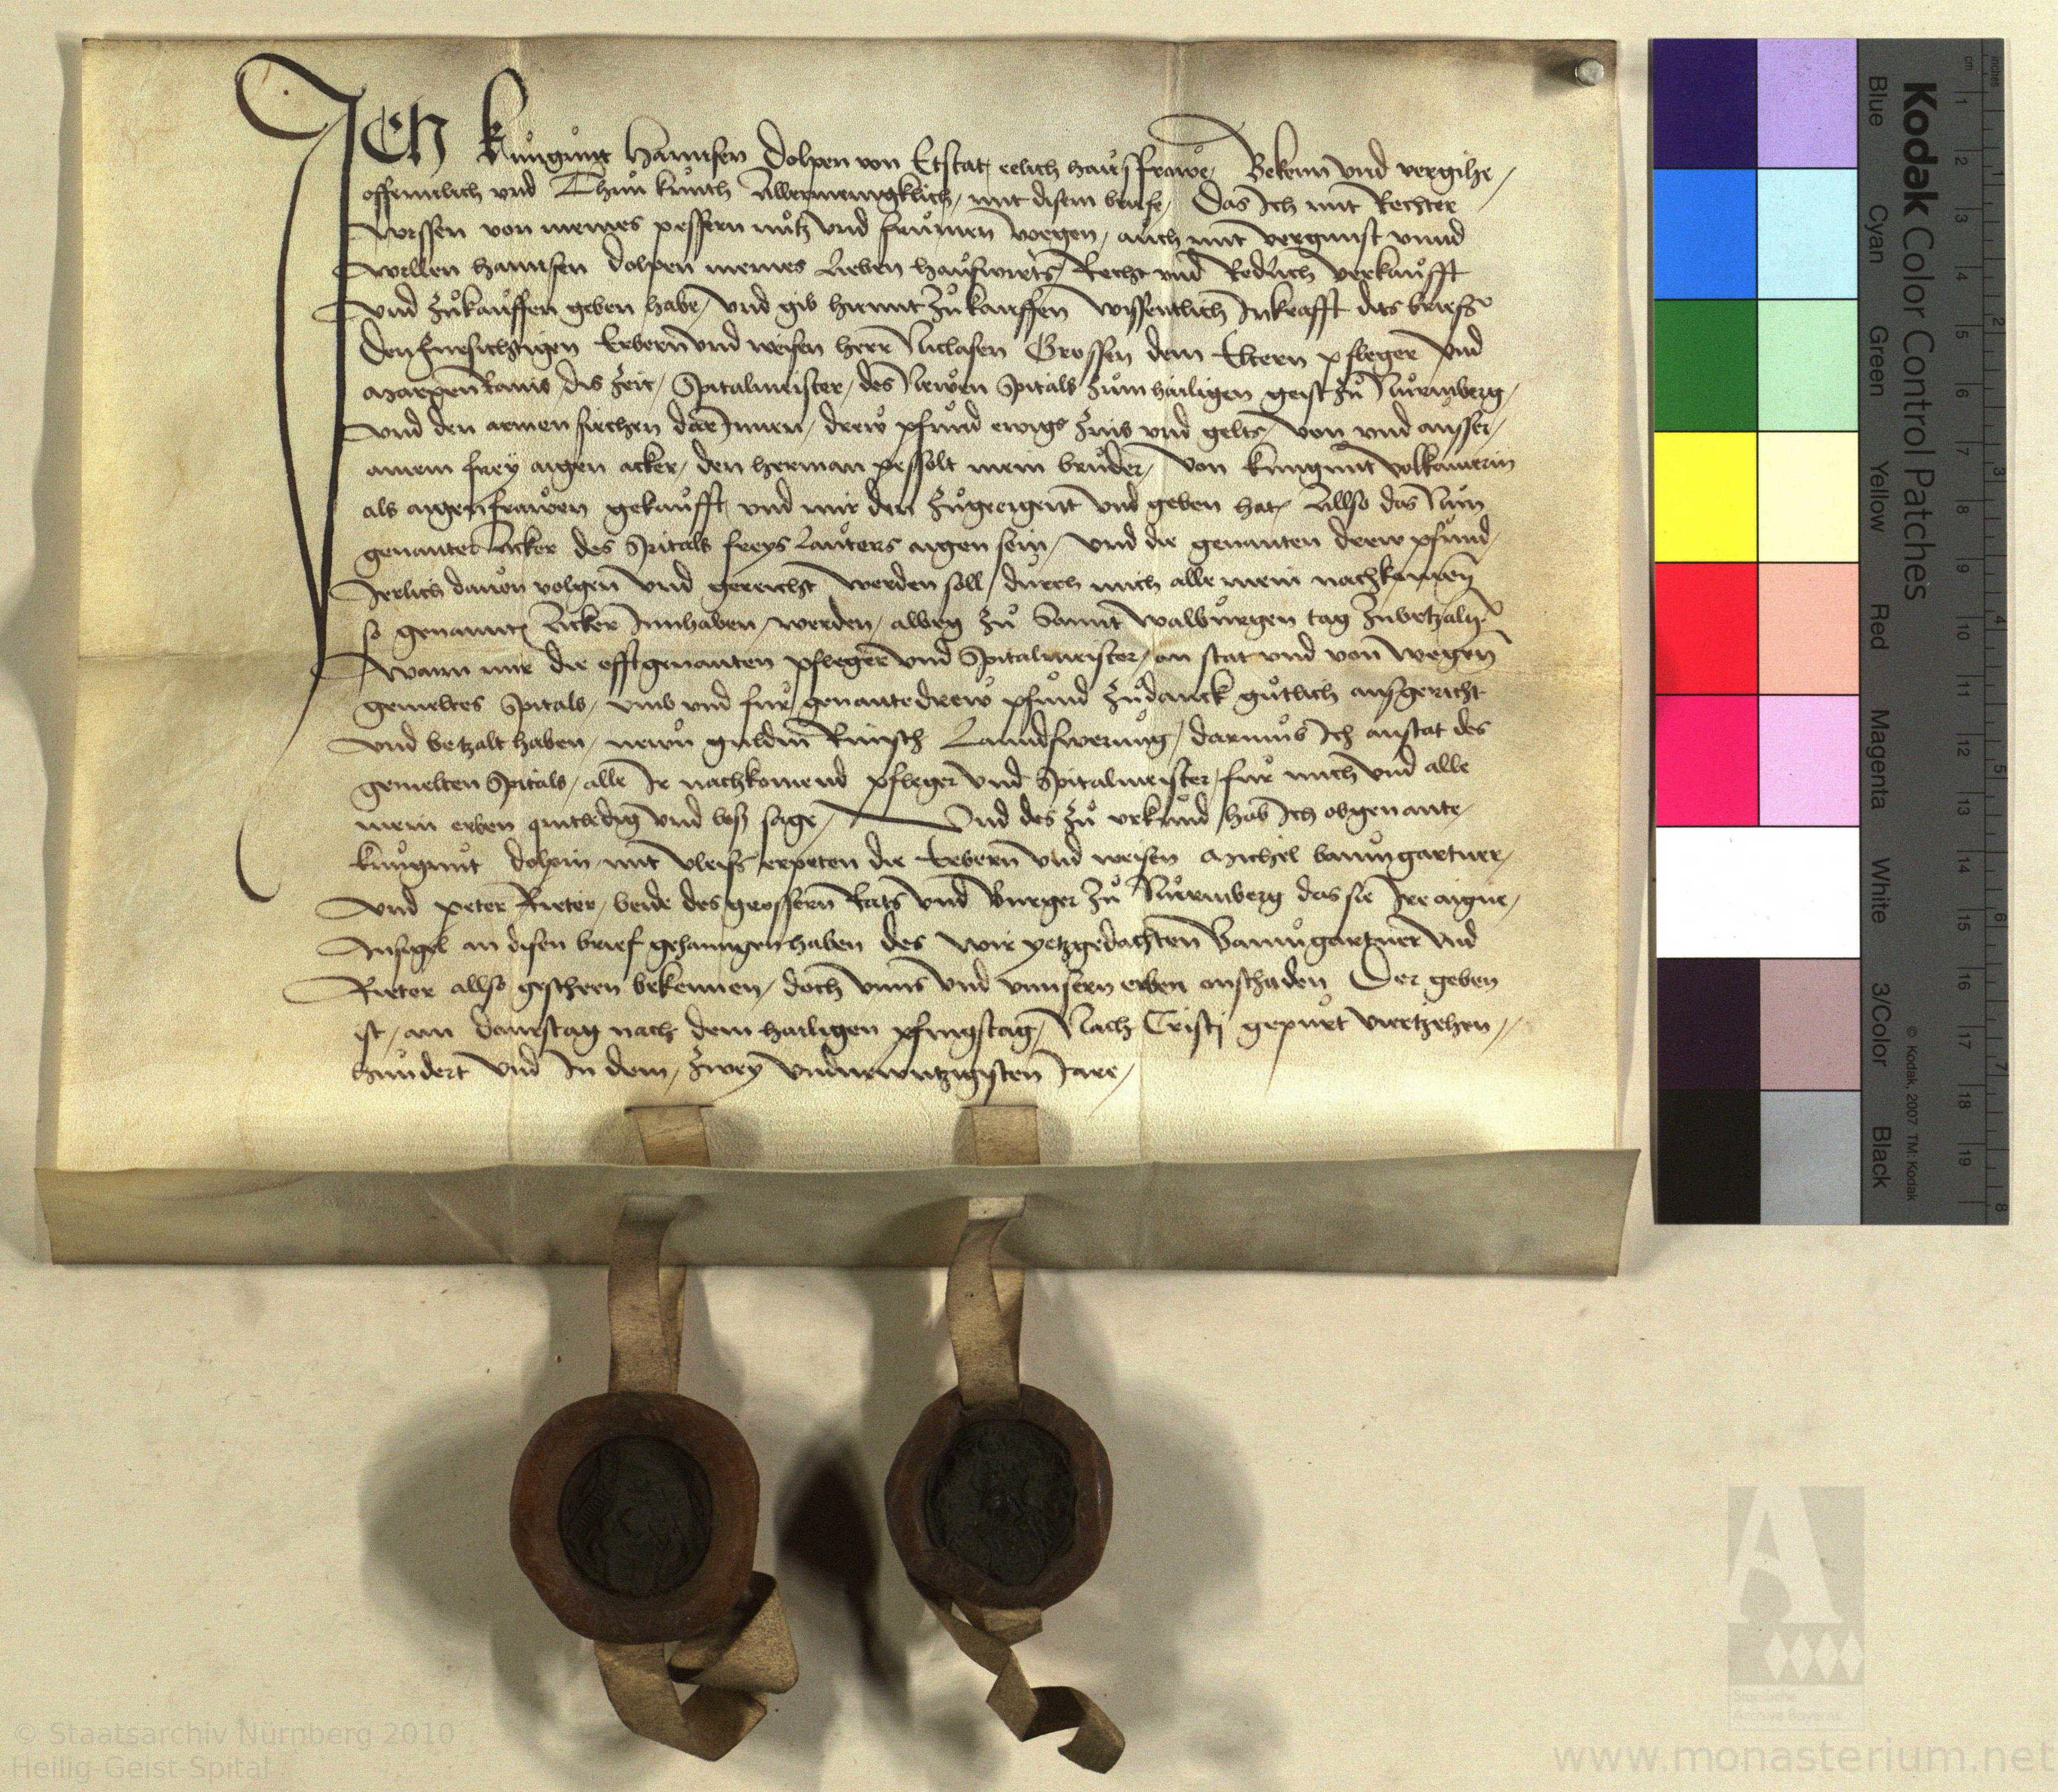 ICH Kůngůnt Hannsen Dolpen von Etstat eelich haůsfrawe, Beken̄ und vergihe,
offennlich und Thůn kůnth Allermenigklich, mit disem briefe, Das Ich mit Rechter
wissen von meines pessern nůtz und frůmen wegen, aůch mit vergunst unnd
willen Hannsen dolpen meines lieben haůswirts, Recht und Redlich verkaůfft
und zůkaůffen geben habe, und gib hiemit zůkauffen wissentlich Inkrafft dits briefs
den fursichtigen Erbern und weisen herr Niclasen Grossen dem Eltern pfleger und
dis zeit, Spitalmeister, des Newen Spitals zům heiligen geist zů Nůrmberg,
und den armen siechen darInnen, drew pfund ewigs zins und gelts, von und ausser,
ainem frey aigen acker, den herman pessolt mein brůder, von kungunt volkamerin
als aigenfrawen gekaůfft, und mir den zůgeeigent und geben hat, Allso das Nun
genanter Acker des Spitals freys laůters aigen sein, und die genanten drew pfůnd,
Jerlich dauon volgen und gereicht werden soll, durch mich alle mein nachkomen
so genannt Acker Innhaben, werden, alweg zů Sannt walbůrgen tag zubetzaln
wann mir die offtgenanten pfleger und Spitalmeister, an stat und von wegen
gemeltes Spitals, umb und fur, genante drew pfůnd zůdanck gůtlich ausgericht
und betzalt haben, newn guldin Rinisch Lanndswerung, darumb Ich anstat des
gemelten Spitals, alle Ir nachkomend pfleger und Spitalmeister, fůr mich und alle
mein erben quitledig und loss sage, Und des zů urkůnd, hab Ich obgenante,
kůngunt dolpin mit vleiss erpeten die Erbern und weisen Michel baumgartner,
und peter Rieter, beide des grossern Rats und Burger zů Nůrmberg das sie Ire aigne,
Insigel an disen brief gehanngen haben des wir yetzgedachten Baumgartner und
Rieter allso gescheen bekennen, doch unns und unnsern erben onschaden Der geben
ist, am dainstag nach dem hailigen pfingstag, Nach Cristj gepůrt viertzehen,
hundert und In dem, zwey undnewntzigisten Jare,
Kodak Color Control Patches
Blue Cyan Green Yellow Red Magenta White 3/Color Black
© Kodak, 2007 TM: Kodak
cm 1 2 3 4 5 6 7 8 9 10 11 12 13 14 15 16 17 18 19
inches 1 2 3 4 5 6 7 8
© Staatsarchiv Nürnberg 2010
Heilig-Geist-Spital
A
Staatliche
Archive Bayerns
www.monasterium.net